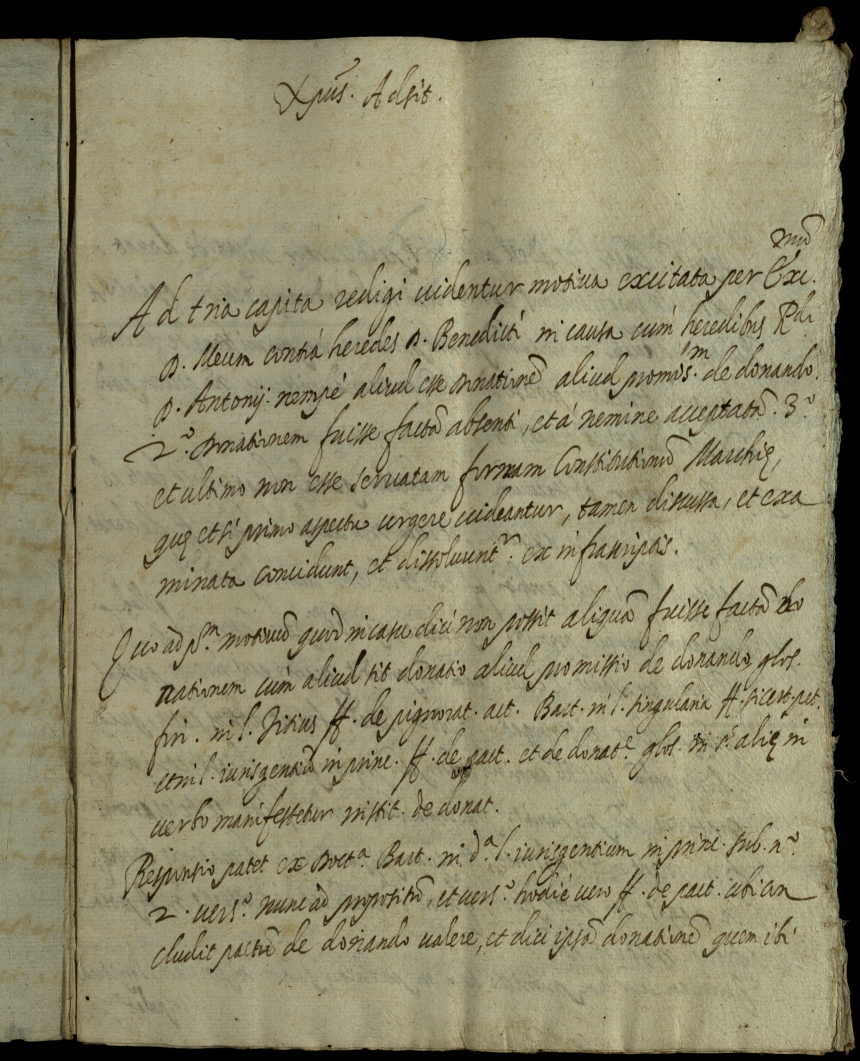 Xpus. Adsit.
mũ
Ad tria capita redigi videntur motiva excitata per Exc.
D. Meum contrà heredes D. Benedicti in causa cum heredibus Rdi
D. Antonij. nempè aliud esse donationẽ aliud promiss.m de donando.
2.º donationem fuisse factã absenti, et à nemine acceptatã. 3.º
et ultimo non esse servatam formam Constitutionũ Marchię,
quę etsi primo aspectu urgere videantur, tamen discussa, et exa
minata concidunt, et dissolvuntr. ex infrascriptis.
Quo ad pm. motivũ quod in casu dici non possit aliquã fuisse factã do
nationem cùm aliud sit donatio aliud promissio de donando glos.
fin. in l. Titius ff. de pignorat. act. Bart. in l. singularia ff. si cert. pet.
et in l. iurisgentiũ in princ. ff. de pact. et de donat.e glos. in §. alię in
verbo manifestetur instit. de donat.
Responsio patet ex Doct.a Bart. in d.a l. iurisgentium in princ. sub. n.º
2. vers.º nunc ad propositũ, et vers.º hodiè vero ff. de pact. ubi con
cludit pactũ de donando valere, et dici ipsã donationẽ quem ibi